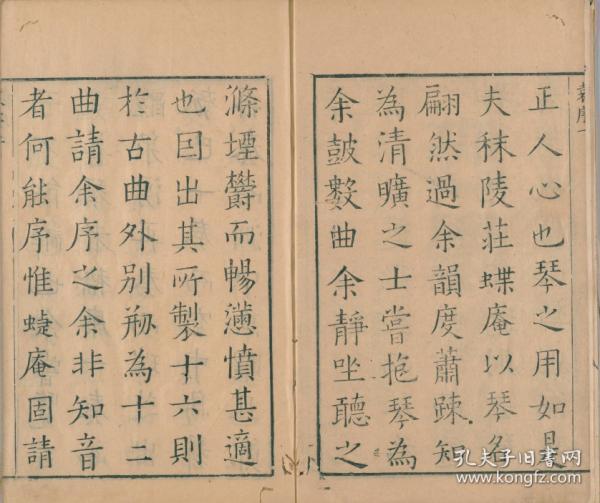 正人心也琴之用如是
夫秣陵莊蝶庵以琴名
翩然過余韻度蕭踈知
為清曠之士嘗抱琴為
余鼓數曲余靜坐聽之
滌堙欝而暢懑憤甚適
也因出其所製十六則
於古曲外別剏為十二
曲請余序之余非知音
者何能序惟蜨庵固請
孔夫子旧书网